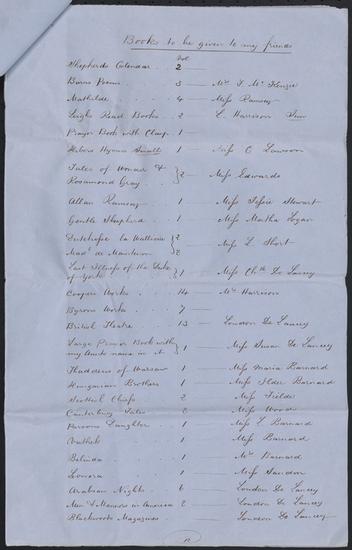 Books to be given to my friends
Vol
Shepherds Calendar 2
Burns Poems 3 Mr T. McKenzie
Mathilde 4 Miss Ramsay
Leighs Road Books 2 L. Harrison
Prayer Book with Clasp 1
Hebers Hymns Small 1 Miss C Lawson
Tales of Wonder &
Rosamond Gray 2 Miss Edwards
Allan Ramsay 1 Miss Jessie Stewart
Gentle Shepherd 1 Miss Martha Logan
Dutchesse la Valliere 2
Mad. de Maintenon 2 Miss L Short
Last Illness of the Duke
of York 1 Miss Chtte De Lancey
Coopers Works 14 Mr Harrison
Byrons Works 7
British Theatre 13 London De Lancey
Large Prayer Book with
my Aunts name in it 1 Miss Susan De Lancey
Thaddeus of Warsaw 1 Miss Maria Barnard
Hungarian Brothers 1 Miss Barnard
Scottish Chiefs 2 Miss Fielde
Canterbury Tales 2 Miss Woods
Parsons Daughter 1 Miss L Barnard
Vathek 1 Miss Barnard
Belinda 2 Mr Barnard
Lenora 1 Miss
Arabian Nights 6 London De Lancey
Men & Manners in America 2 London De Lancey
Blackwoods Magazines London De Lancey